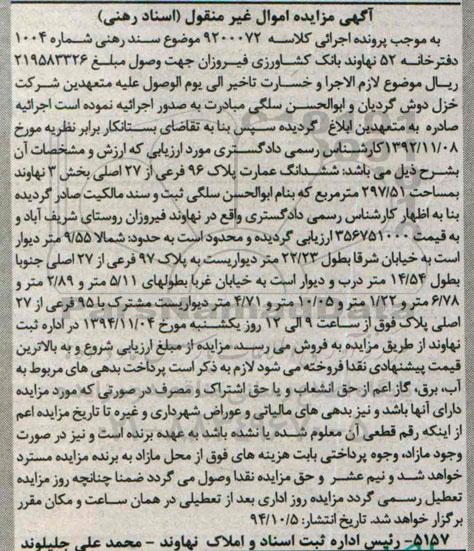 آگهی مزایده اموال غیر منقول (اسناد رهنی)
به موجب پرونده اجرائی کلاسه ۹۲۰۰۰۷۲ موضوع سند رهنی شماره ۱۰۰۴
دفترخانه ۵۲ نهاوند بانک کشاورزی فیروزان جهت وصول مبلغ ۲۱۹۵۸۳۳۲۶
ریال موضوع لازم الاجرا و خسارت تاخیر الی یوم الوصول علیه متعهدین شرکت
خزل دوش گردیان و ابوالحسن سلگی مبادرت به صدور اجرائیه نموده است اجرائیه
صادره به متعهدین ابلاغ گردیده سپس بنا به تقاضای بستانکار برابر نظریه مورخ
۱۳۹۲/۱۱/۰۸کارشناس رسمی دادگستری مورد ارزیابی که ارزش و مشخصات آن
بشرح ذیل می باشد: ششدانگ عمارت پلاک ۹۶ فرعی از ۲۷ اصلی بخش ۳ نهاوند
بمساحت ۲۹۷/۵۱ مترمربع که بنام ابوالحسن سلگی ثبت و سند مالکیت صادر گردیده
بنا به اظهار کارشناس رسمی دادگستری واقع در نهاوند فیروزان روستای شریف آباد و
به قیمت ۳۵۶۷۵۱۰۰۰ ارزیابی گردیده و محدود است به حدود: شمالا ۹/۵۵ متر دیوار
است به خیابان شرقا بطول ۲۲/۲۳ متر دیواریست به پلاک ۹۷ فرعی از ۲۷ اصلی جنوبا
بطول ۱۴/۵۴ متر درب و دیوار است به خیابان غربا بطولهای ۵/۱۱ متر و ۲/۸۹ متر و
۶/۷۸ متر و ۱/۲۲ متر و ۱۰/۰۵ متر و ۴/۷۱ متر دیواریست مشترک با ۹۵ فرعی از ۲۷
اصلی پلاک فوق از ساعت ۹ الی ۱۲ روز یکشنبه مورخ ۱۳۹۴/۱۱/۰۴ در اداره ثبت
نهاوند از طریق مزایده به فروش می رسد. مزایده از مبلغ ارزیابی شروع و به بالاترین
قیمت پیشنهادی نقدا فروخته می شود لازم به ذکر است پرداخت بدهی های مربوط به
آب، برق، گاز اعم از حق انشعاب و یا حق اشتراک و مصرف در صورتی که مورد مزایده
دارای آنها باشد و نیز بدهی های مالیاتی و عوارض شهرداری و غیره تا تاریخ مزایده اعم
از اینکه رقم قطعی آن معلوم شده یا نشده باشد به عهده برنده است و نیز در صورت
وجود مازاد، وجوه پرداختی بابت هزینه های فوق از محل مازاد به برنده مزایده مسترد
خواهد شد و نیم عشر و حق مزایده نقدا وصول می گردد ضمنا چنانچه روز مزایده
تعطیل رسمی گردد مزایده روز اداری بعد از تعطیلی در همان ساعت و مکان مقرر
برگزار خواهد شد. تاریخ انتشار: ۹۴/۱۰/۵
۵۱۵۷- رئیس اداره ثبت اسناد و املاک نهاوند - محمد علی جلیلوند